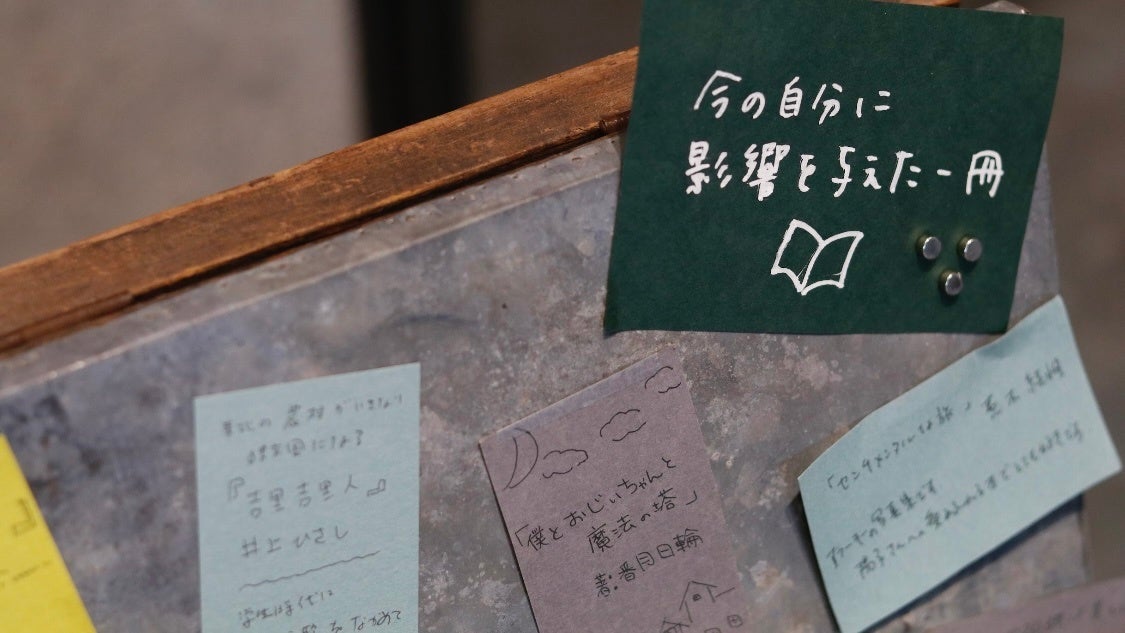 今の自分に
影響を与えた一冊
東北の農村がいきなり
独立国になる
『吉里吉里人』
井上ひさし
学生時代に
ながめて
「僕とおじいちゃんと
魔法の塔」
著:香月日輪
「センチメンタルな旅」荒木 経惟
アラーキーの写真集です
陽子さんへの